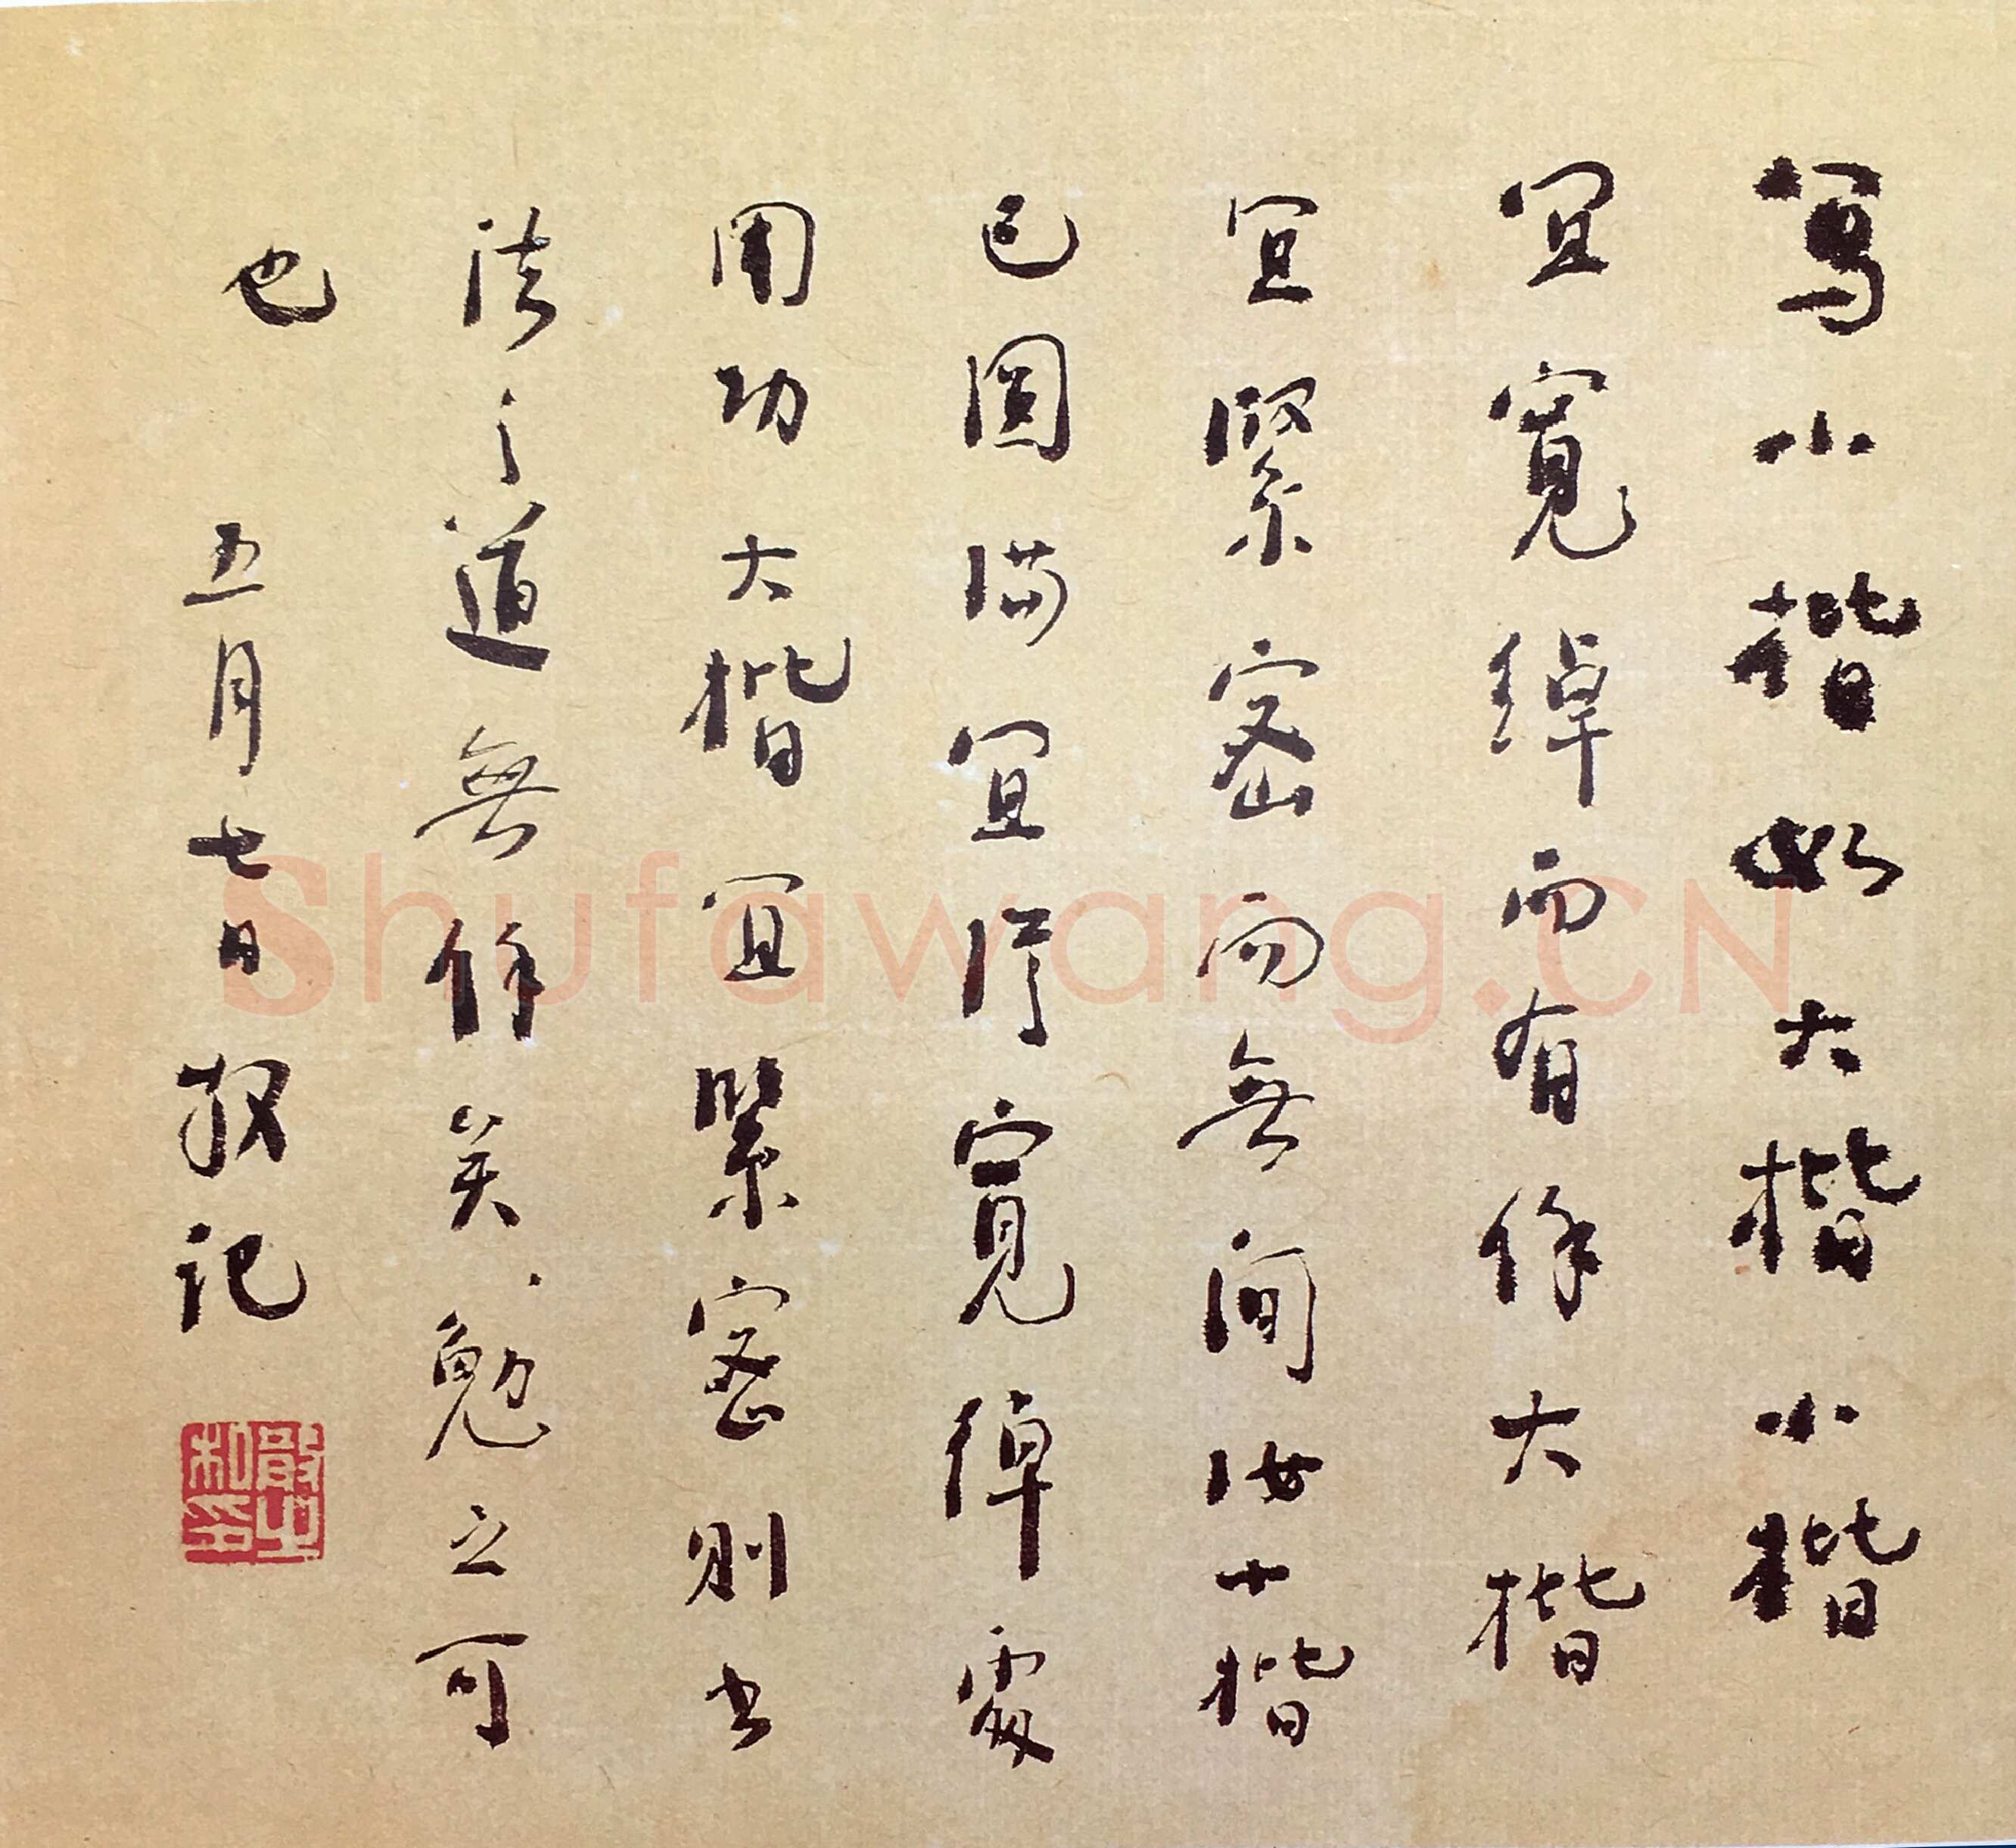 写小楷如大楷小楷
宜寬綽而有餘大楷
宜緊密而無間汝小楷
已圓滿宜從寬綽處
用功大楷宜緊密則書
法之道無餘矣勉之可
也 五月七日敬記
敬之私印
Shufawang.CN